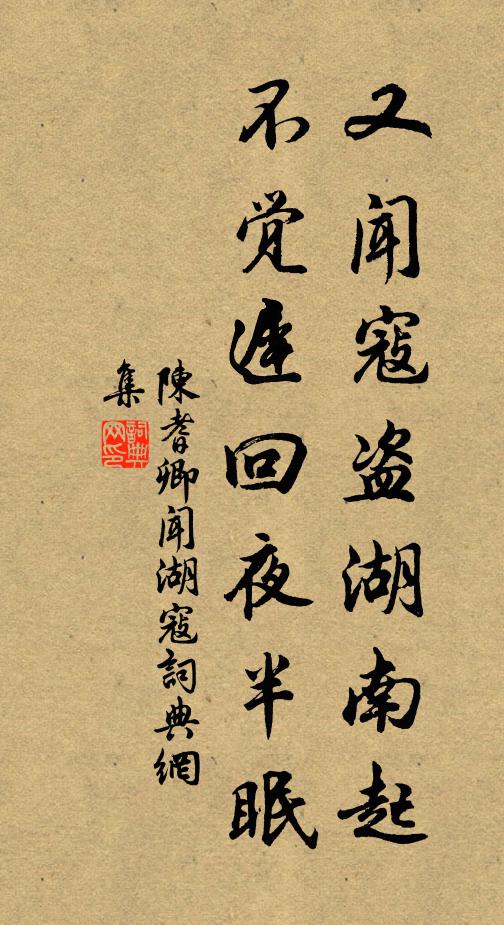 又闻寇盗湖南起
不觉遅回夜半眠
陳耆卿闻湖寇詞典網
集
詞典
网印